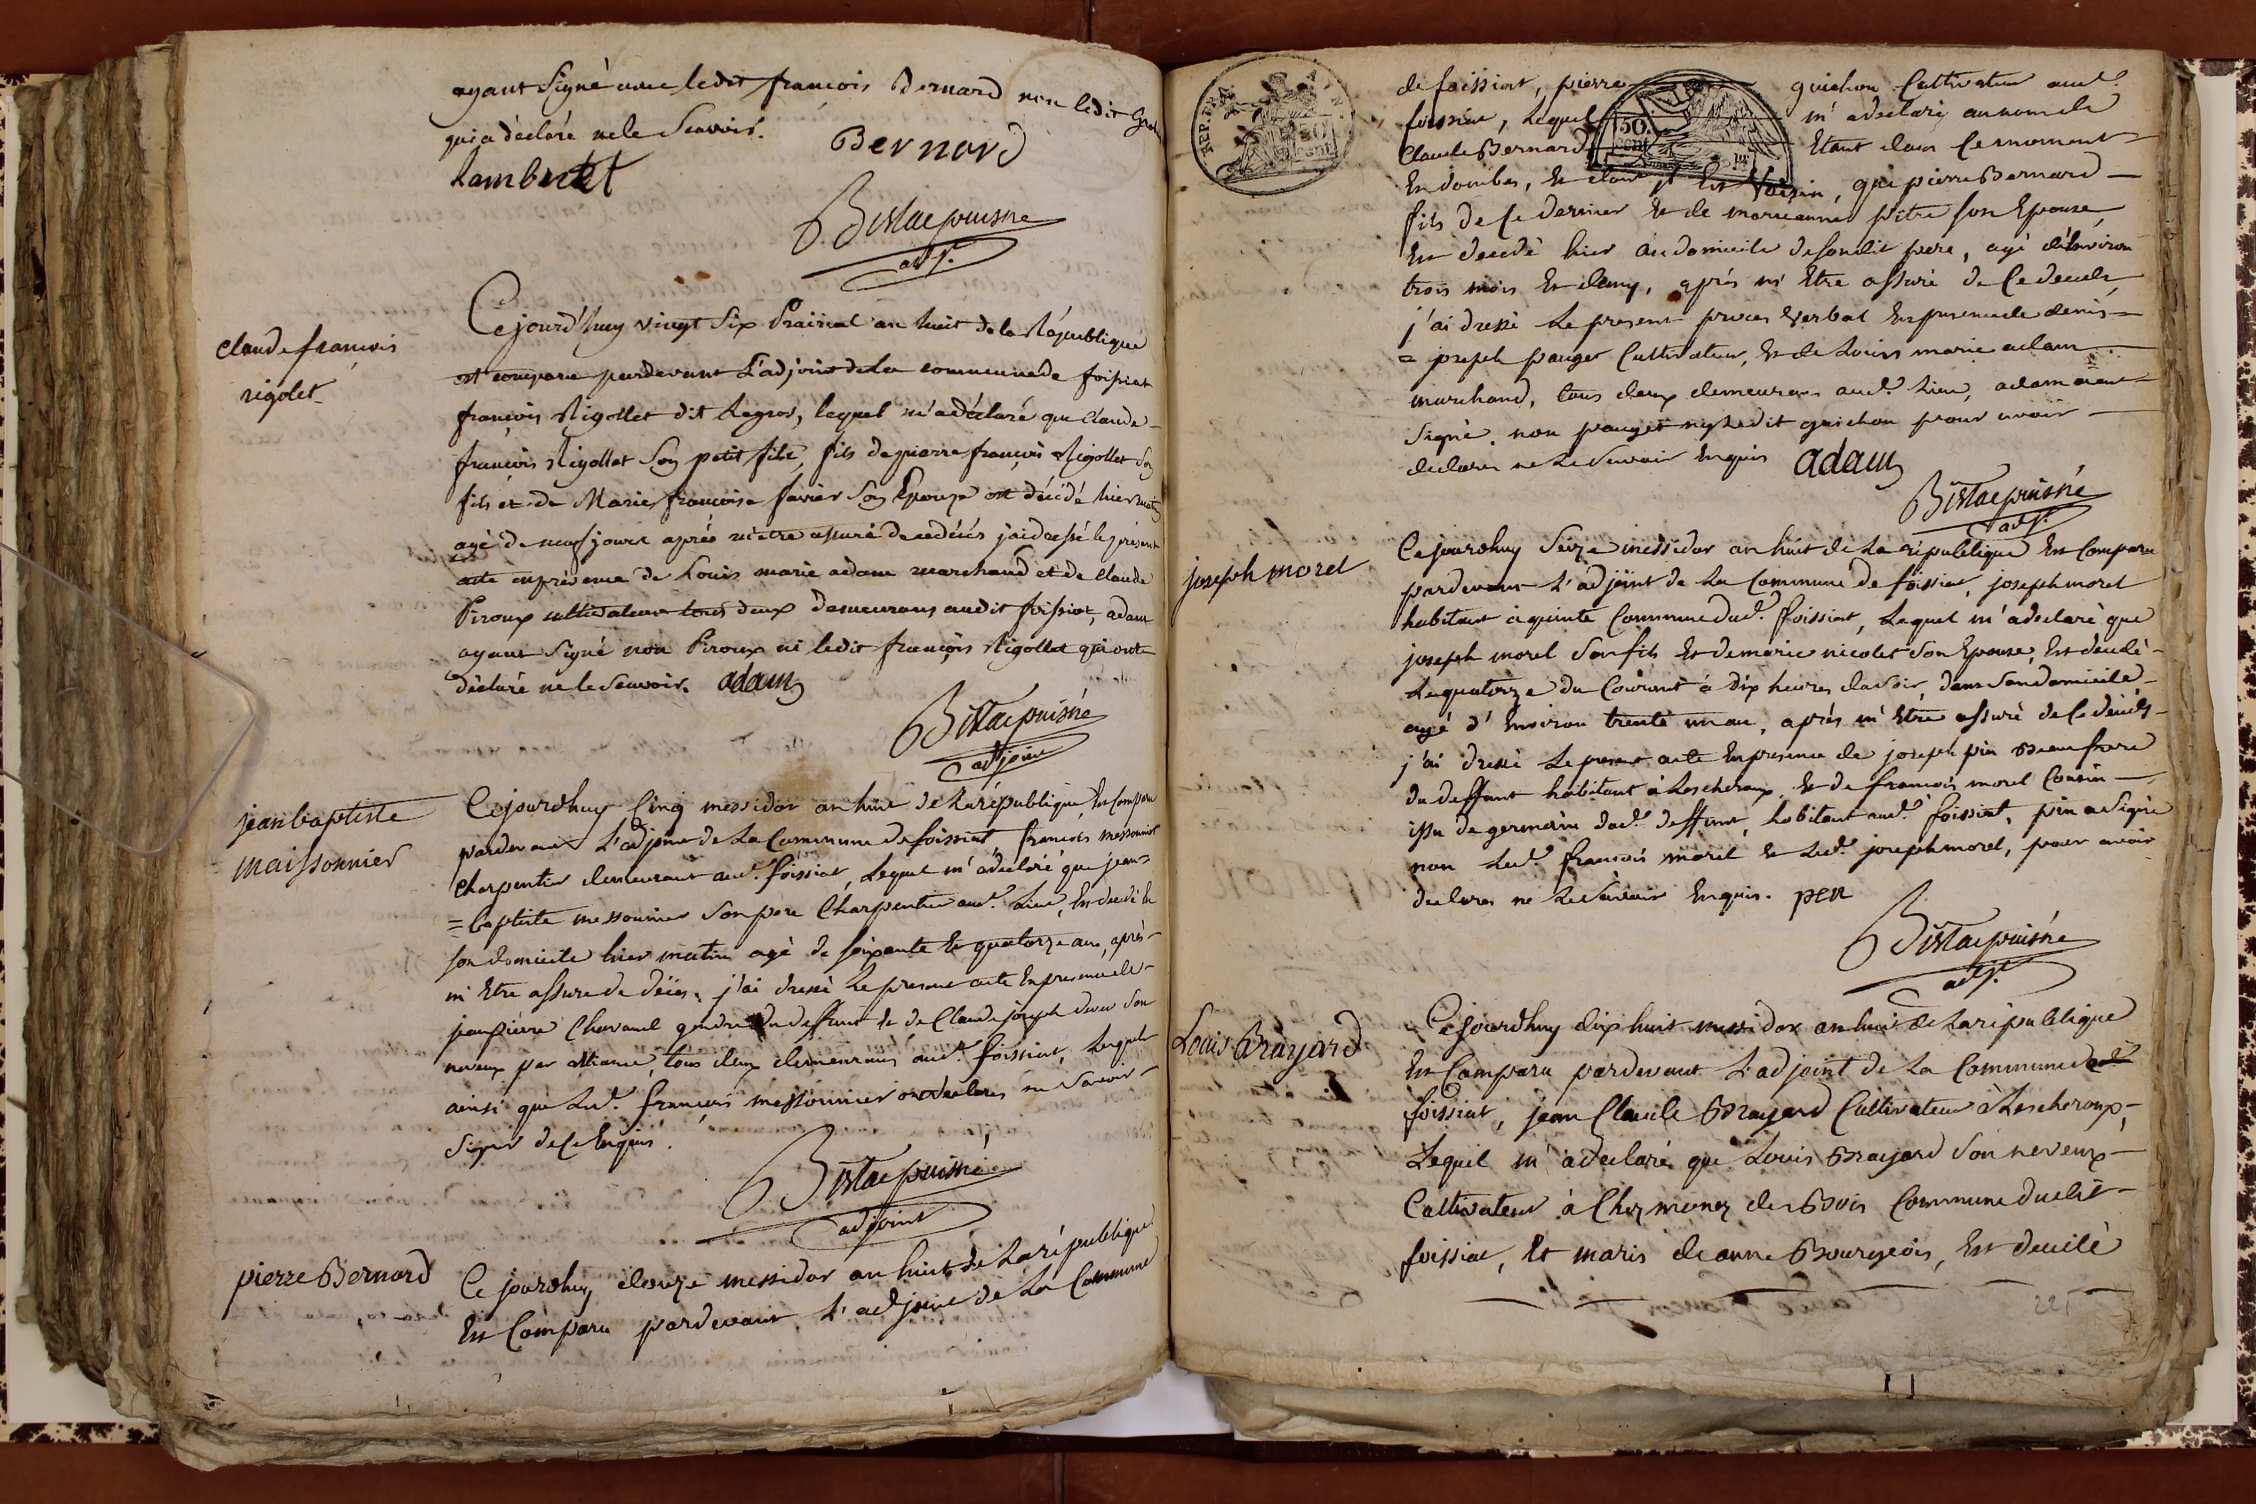 ayant Signé avec ledit françois Bernard non ledit
qui a déclaré ne le Scavoir.
Bernard
Lambert
Bistac puisné
adj.
claude françois
rigolet
Ce jourd'huy vingt Six Prairial an huit de la République
est comparu pardevant L'adjoint de la commune de foissiat
françois Rigollet dit Legros, lequel m'a déclaré que Claude
françois Rigollet Son petit fils, fils de pierre françois Rigollet Son
fils et de Marie françoise favier Son Epouse est décédé hier matin
agé de neuf jours après m'etre assuré de ce décés j'ai dressé le présent
acte en présence de Louis marie adam marchand et de Claude
Piroux cultivateur tous deux demeurans audit foissiat, adam
ayant Signé non Piroux ni ledit françois Rigollet qui ont
déclaré ne le Scavoir. adam
Bistac puisné
adjoint
jean baptiste
maissonnier
Cejourdhuy Cinq messidor an huit de La république, Est Comparu
pardevant L'adjoint de La Commune de foissiat francois messonnier
Charpentier demeurant aud. foissiat, Lequel m'a déclaré que jean=
=baptiste messonnier Son pere Charpentier aud. Lieu, Est decedé En
son domicile hier matin agé de soixante Et quatorze ans, après
m'Etre assure de déces, j'ai dressé Le present acte En presence de
jean pierre Chavanel gendre du deffunt Et de Claude joseph Son
neveux par alliance, tous deux demeurans aud. foissiat, Lesquels
ainsi que Led. francois messonnier ont declares ne Savoir
Signer de Ce Enquis.
Bistac puisné
adjoint
pierre Bernard
Ce jourdhuy douze messidor an huit de La république
Est Comparu pardevant L'adjoint de La Commune
REP. FRA.
50
cent
de foissiat, pierre guichon Cultivateur aud.
foissiat, Lequel m'a declaré au nom de
Claude Bernard Etant dans Ce moment
En dombes, Et dont il Est Voisin, que pierre Bernard
fils de Ce dernier Et de marie anne pitre son Epouse,
Est decedé hier au domicile de son dit pere, agé d'Environ
trois mois Et demy, après m'Etre assuré de Ce deceds,
j'ai dressé Le present proces verbal En presence de denis
= joseph pauget Cultivateur, Et de Louis marie adam
marchand, tous deux demeurans aud. Lieu, adam aiant
Signé, non pauget ny Ledit guichon pour avoir
declares ne Le Savoir Enquis adam
Bistac puisné
adj.
joseph morel
Ce jourdhuy Seize messidor an huit de La république Est Comparu
pardevant L'adjoint de La Commune de foissiat, joseph morel
habitant à quinte Commune dud. foissiat, Lequel m'a declaré que
joseph morel Son fils Et de marie nicolet Son Epouse, Est décedé
Le quatorze du Courant à dix heures du Soir, dans Son domicile
agé d'Environ trente un an, après m'Etre assuré de Ce décéds
j'ai dressé Le present acte En presence de joseph pin Beau frere
du deffunt habitant à Lescheroux, Et de francois morel Cousin
issu de germain dud. deffunt, habitant aud. foissiat, pin a Signé
non Led. francois morel Et Led. joseph morel, pour avoir
declares ne Le Savoir Enquis. pen
Bistac puisné
adj.
Louis Brayard
Cejourdhuy dix huit messidor an huit de La république
Est Comparu pardevant L'adjoint de La Commune de
foissiat, jean Claude Brayard Cultivateur à Lescheroux,
Lequel m'a declaré que Louis Brayard Son neveux
Cultivateur à Chez menez des Bois Commune dudit
foissiat, Et maris de anne Bourgeois, Est decedé